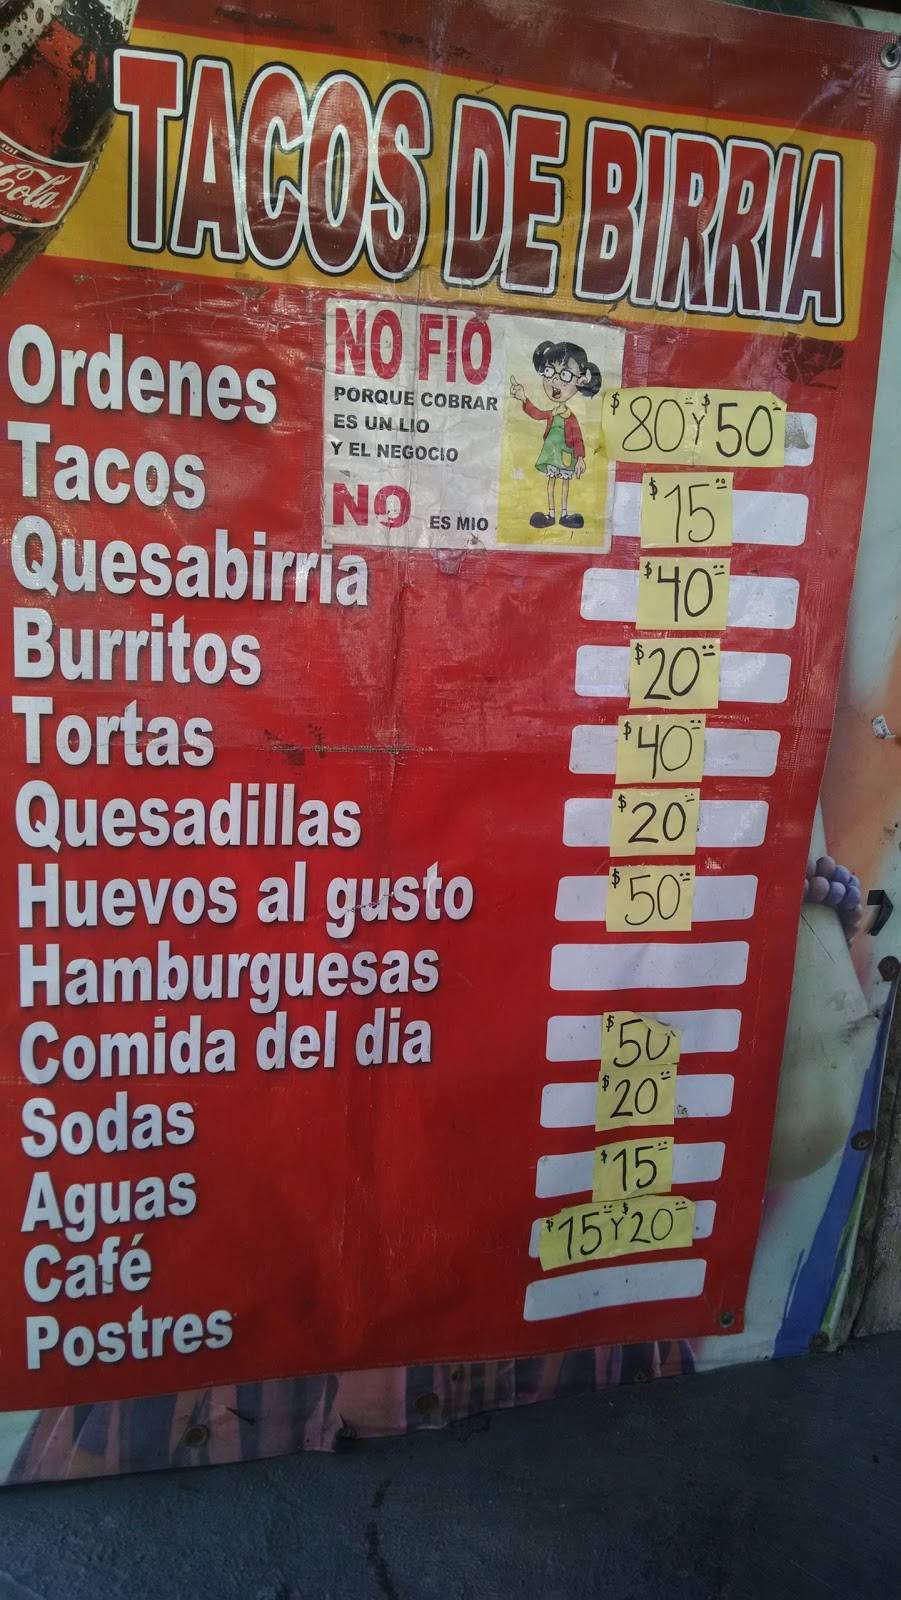 Cola
TACOS DE BIRRIA
NO FIO
PORQUE COBRAR
ES UN LIO
Y EL NEGOCIO
NO ES MIO
Ordenes $80 Y $50
Tacos $15
Quesabirria $40
Burritos $20
Tortas $40
Quesadillas $20
Huevos al gusto $50
Hamburguesas
Comida del dia $50
Sodas $20
Aguas $15
Café $15 Y $20
Postres